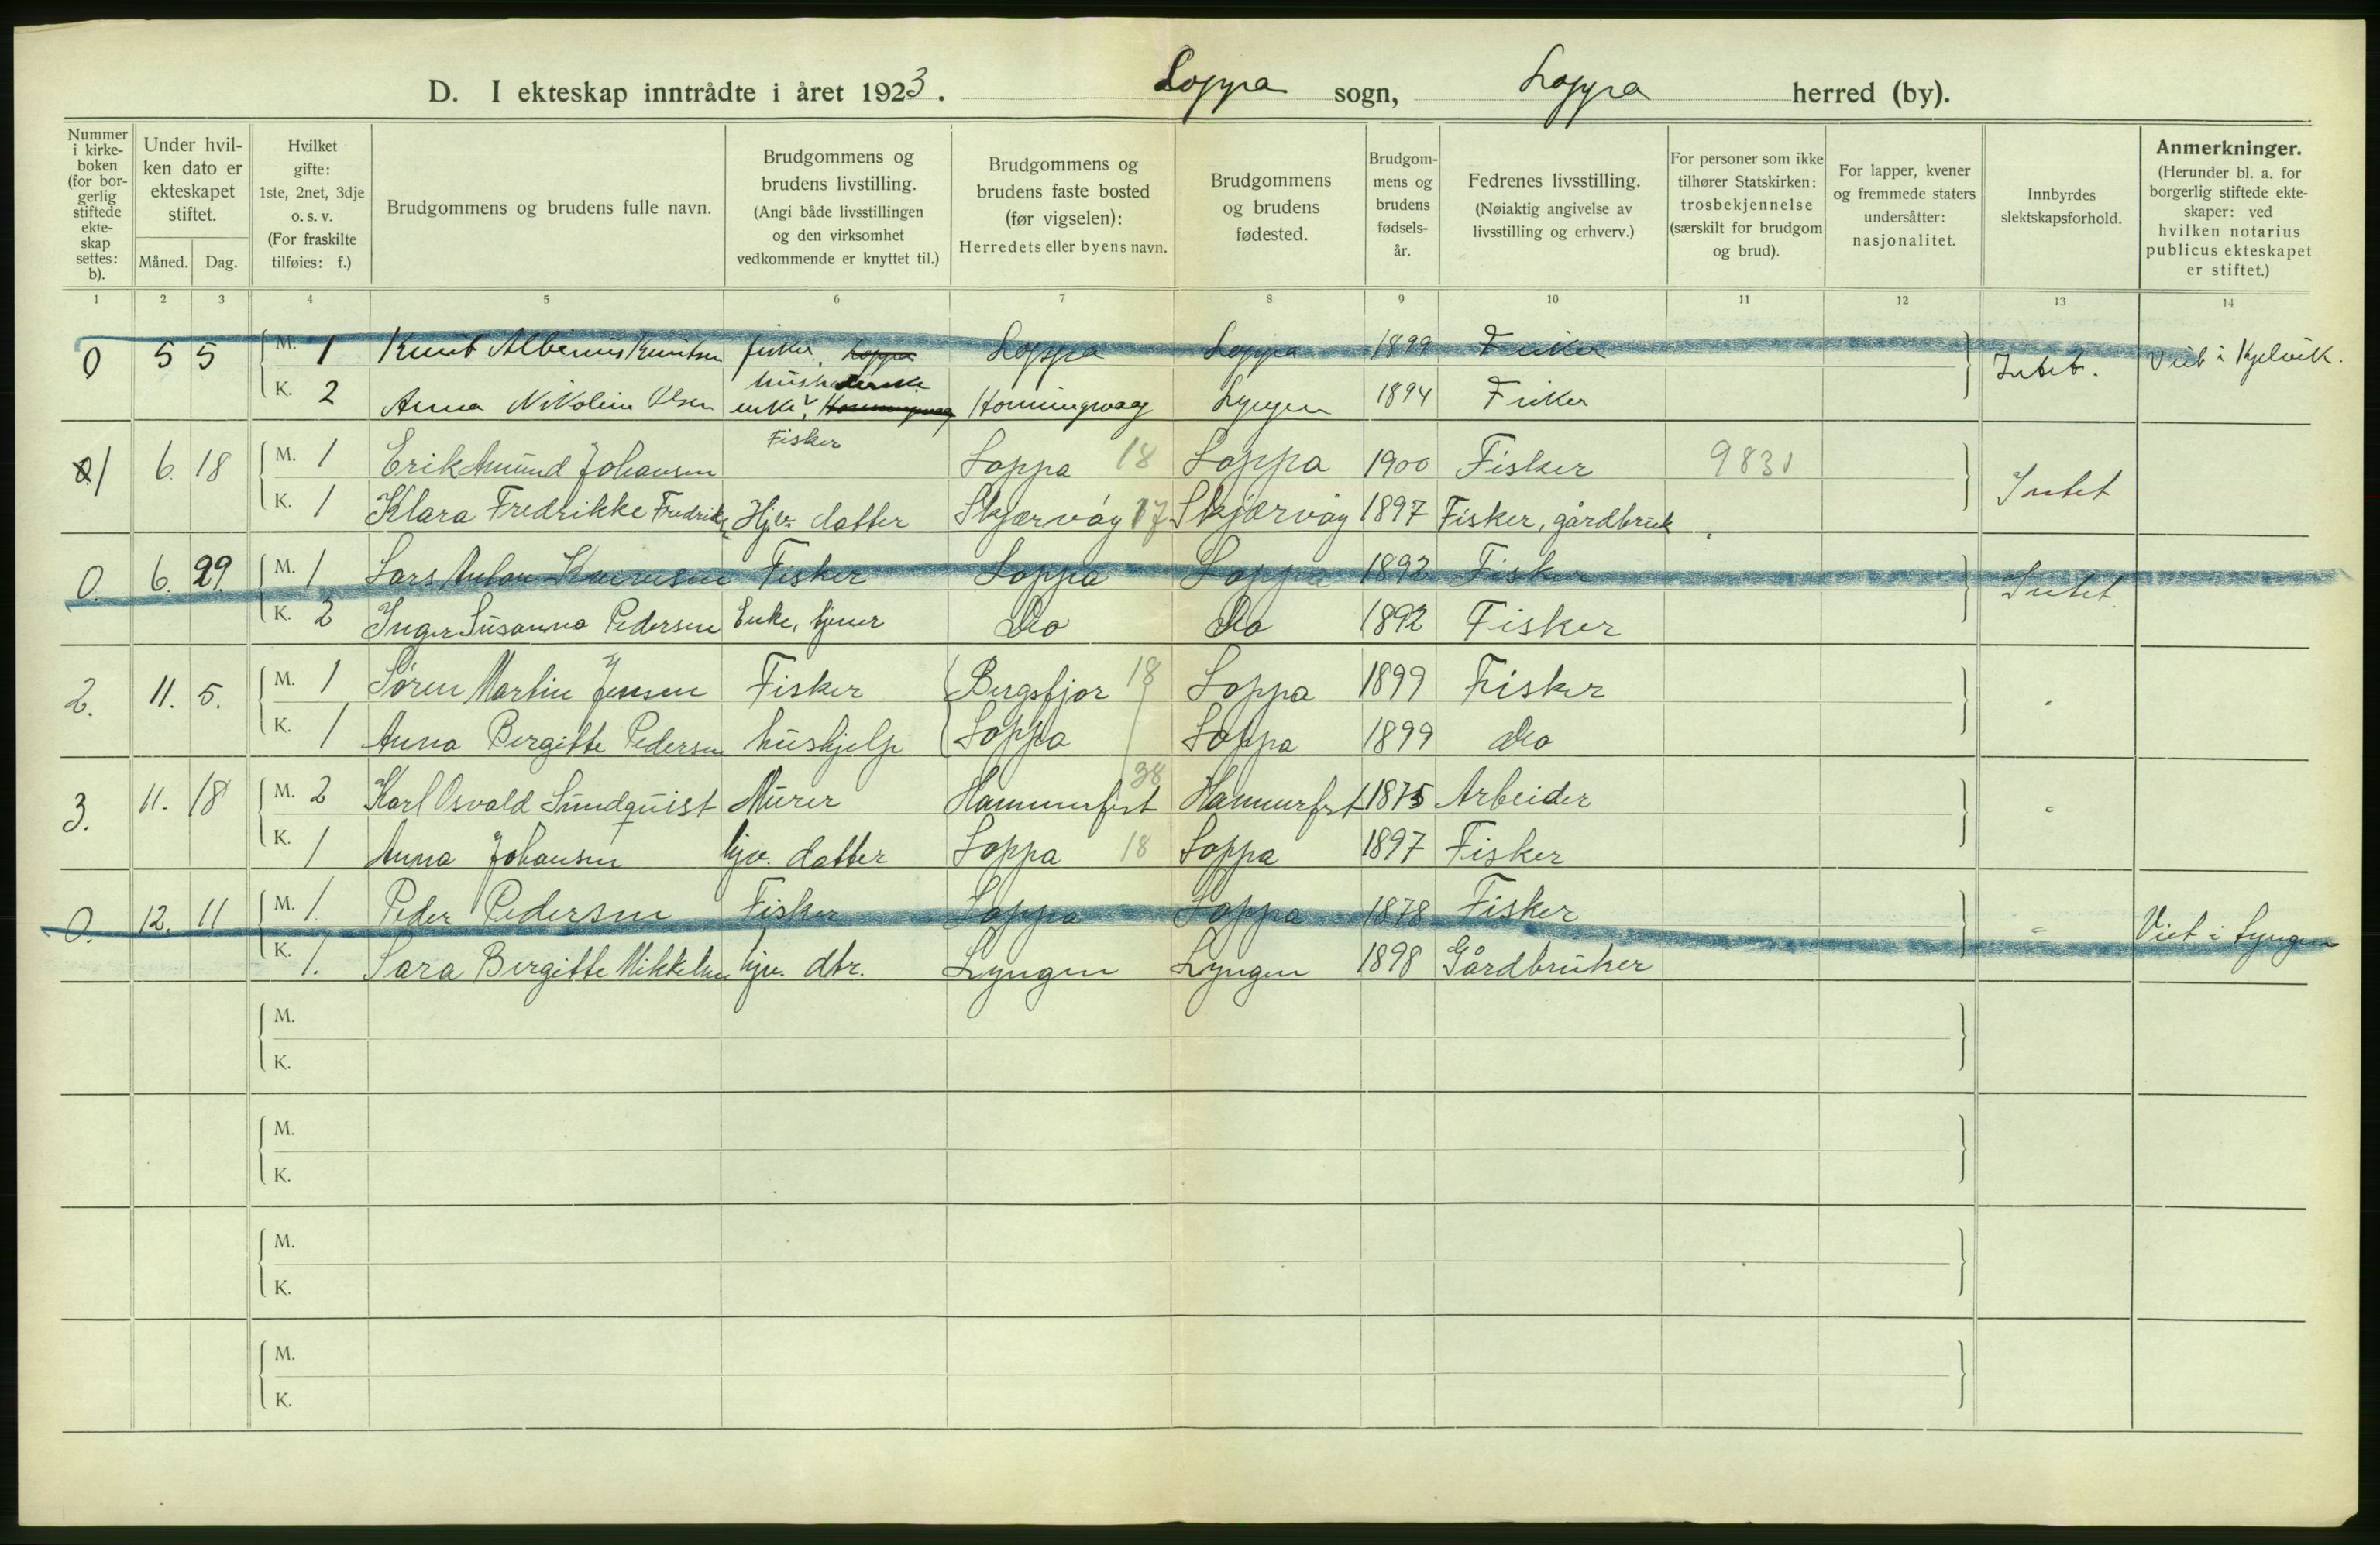 D. I ekteskap inntrådte i året 1923. Loppa sogn, Loppa herred (by).
Nummer i kirke- boken (for bor- gerlig stiftede ekte- skap settes: b).
Under hvil- ken dato er ekteskapet stiftet.
Måned. Dag.
Hvilket gifte: 1ste, 2net, 3dje o. s. v. (For fraskilte tilføies: f.)
Brudgommens og brudens fulle navn.
Brudgommens og brudens livstilling. (Angi både livsstillingen og den virksomhet vedkommende er knyttet til.)
Brudgommens og brudens faste bosted (før vigselen): Herredets eller byens navn.
Brudgommens og brudens fødested.
Brudgom- mens og brudens fødsels- år.
Fedrenes livsstilling. (Nøiaktig angivelse av livsstilling og erhverv.)
For personer som ikke tilhører Statskirken: trosbekjennelse (særskilt for brudgom og brud).
For lapper, kvener og fremmede staters undersåtter: nasjonalitet.
Innbyrdes slektskapsforhold.
Anmerkninger. (Herunder bl. a. for borgerlig stiftede ekte- skaper: ved hvilken notarius publicus ekteskapet er stiftet.)
1 2 3 4 5 6 7 8 9 10 11 12 13 14
0 5 5 M. 1 Knut Albinius Knutsen fisker, Loppa Loppa Loppa 1899 Fisker Intet. Viet i Kjelvik.
K. 2 Anna Nikoline Olsen enke, Honningvaag Honningvaag Lyngen 1894 Fisker
1 6. 18 M. 1 Erik Amund Johansen Fisker Loppa 18 Loppa 1900 Fisker 9831 Intet
K. 1 Klara Fredrikke Fredriks Hjv. datter Skjærvøy 17 Skjærvøy 1897 Fisker, gårdbruk
0. 6. 29. M. 1 Lars Anton Fisker Loppa Loppa 1892 Fisker Intet.
K. 2 Inger Susanna Pedersen Enke, tjener Do Do 1892 Fisker
2. 11. 5. M. 1 Søren Martin Jensen Fisker Bergsfjor 18 Loppa 1899 Fisker "
K. 1 Anna Bergitte Pedersen hushjelp Loppa Loppa 1899 Do
3. 11. 18 M. 2 Karl Osvald Sundquist Murer Hammerfest 38 Hammerfest 1875 Arbeider "
K. 1 Anna Johansen hjv. datter Loppa 18 Loppa 1897 Fisker
0. 12. 11 M. 1. Peder Pedersen Fisker Loppa Loppa 1878 Fisker " Viet i Lyngen
K. 1. Sara Bergitte Mikkelsen hjv. dtr. Lyngen Lyngen 1898 Gårdbruker
M.
K.
M.
K.
M.
K.
M.
K.